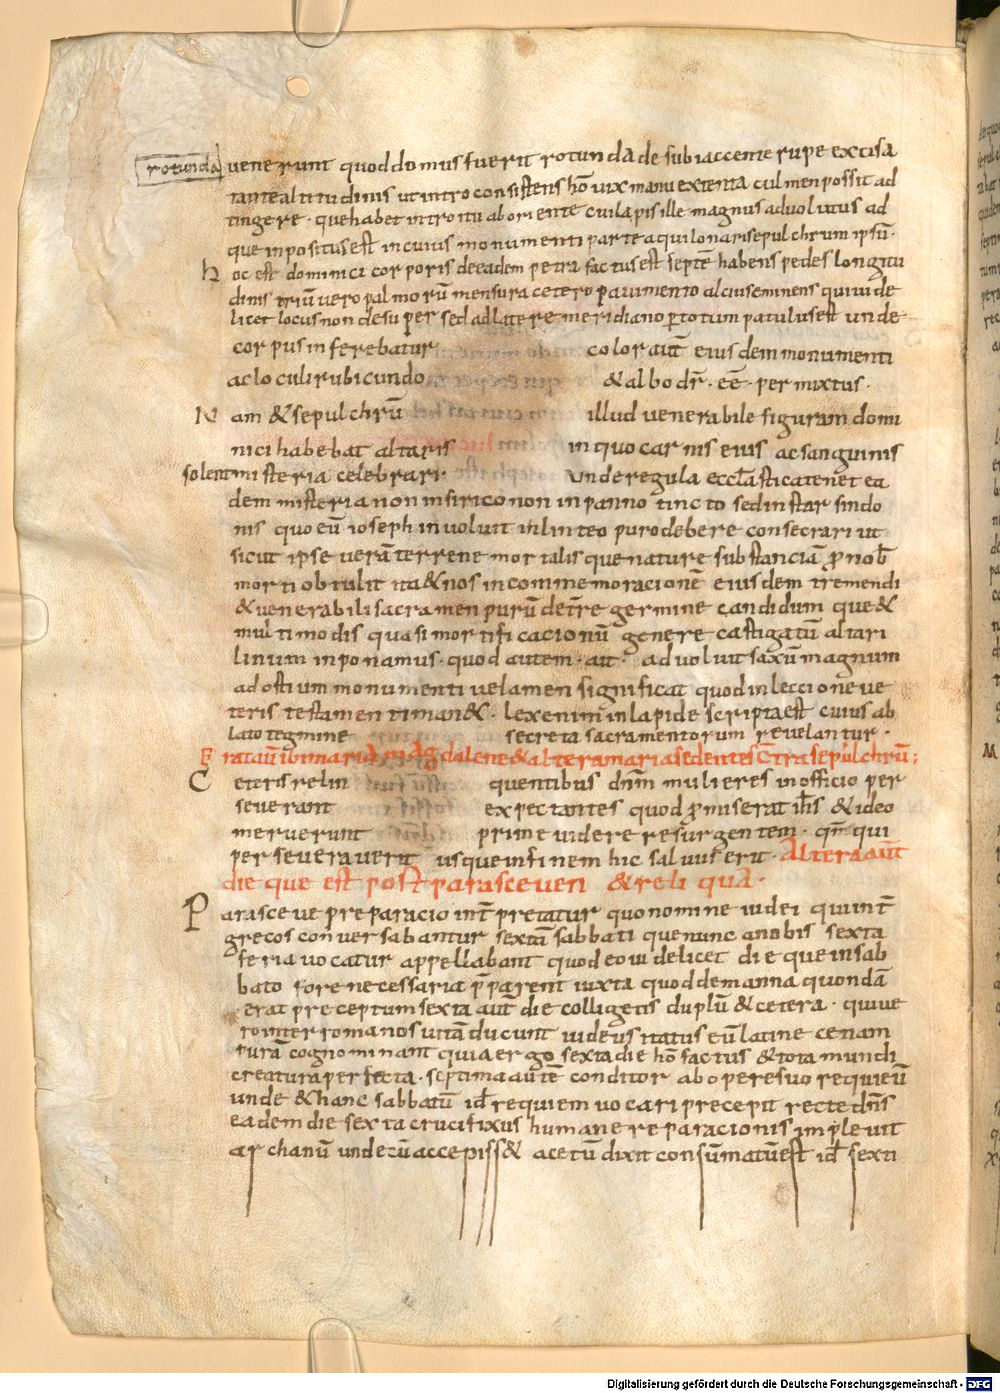 rotunda
venerunt quod domus fuerit rotunda de subiacceme rupe excisa
tante altitudinis ut intro consistens hō vix manu extenta culmen possit ad
tingere · que habet introitū ab oriente cui lapis ille magnus advolutus ad
que inpositus est in cuius monumenti parte aquilonari sepulchrum ipsū ·
hoc est dominici corporis de eadem petra factus est septē habens pedes longitu
dinis triū vero palmorū mensura cetero pavimento alcius eminens qui vide
licet locus non desuper sed ad latere meridiano p totum patulus est unde
corpus inferebatur color aut̄ eiusdem monumenti
ac loculi rubicundo & albo dr̄ · eē · permixtus ·
Nam & sepulchrū illud venerabile figuram domi
nici habebat altaris in quo carnis eius ac sanguinis
solent misteria celebrari unde regula eccl̄astica tenet ea
dem misteria non in sirico non in panno tincto sed instar sindo
nis quo eū ioseph involvit ihl̄ linteo puro debere consecrari ut
sicut ipse verā terrene mortalisque nature substanciā p nob̄
morti obtulit ita & nos in commemoracionē eiusdem tremendi
& venerabili sacramen purū de tr̄e germine candidum que &
multimodis quasi mortificacionū genere castigatū altari
linum inponamus · quod autem · ait · advoluit saxū magnum
ad ostium monumenti velamen significat quod in leccione ve
teris testamenti man& · lex enim in lapide scripta est cuius ab
lato tegmine secreta sacramentorum revelantur ·
Erat aut̄ ibi maria magdalene & altera maria sedentes c̄tra sepulchrū ;
Ceteris relin quentibus dn̄m mulieres in officio per
severant expectantes quod pmiserat ih̄s & ideo
meruerunt prime videre resurgentem · qn̄ qui
perseveraverit usque in finem hic salvus erit · Altera aut̄
die que est post parasceven & reliqua ·
Parasceve preparacio int̄pretatur quo nomine iudei qui int̄
grecos conversabantur sextā sabbati que nunc a nobis sexta
feria vocatur appellabant quod eo videlicet die que in sab
bato fore necessaria p̄parent iuxta quod de manna quondā
erat preceptum sexta aut̄ die colligetis duplū & cetera · qui ve
ro inter romanos vitā ducunt iudeus itatus eū latine cenam
purā cognominant quia ergo sexta die hō factus & tota mundi
creatura perfecta · septima autē conditor ab opere suo requievit
unde & hanc sabbatū id̄ requiem vocari precepit recte dn̄s
eadem die sexta crucifixus humane reparacionis implevit
archanū unde cū accepiss& acetū dixit consūmatū est id̄ sexti
Digitalisierung gefördert durch die Deutsche Forschungsgemeinschaft - DFG